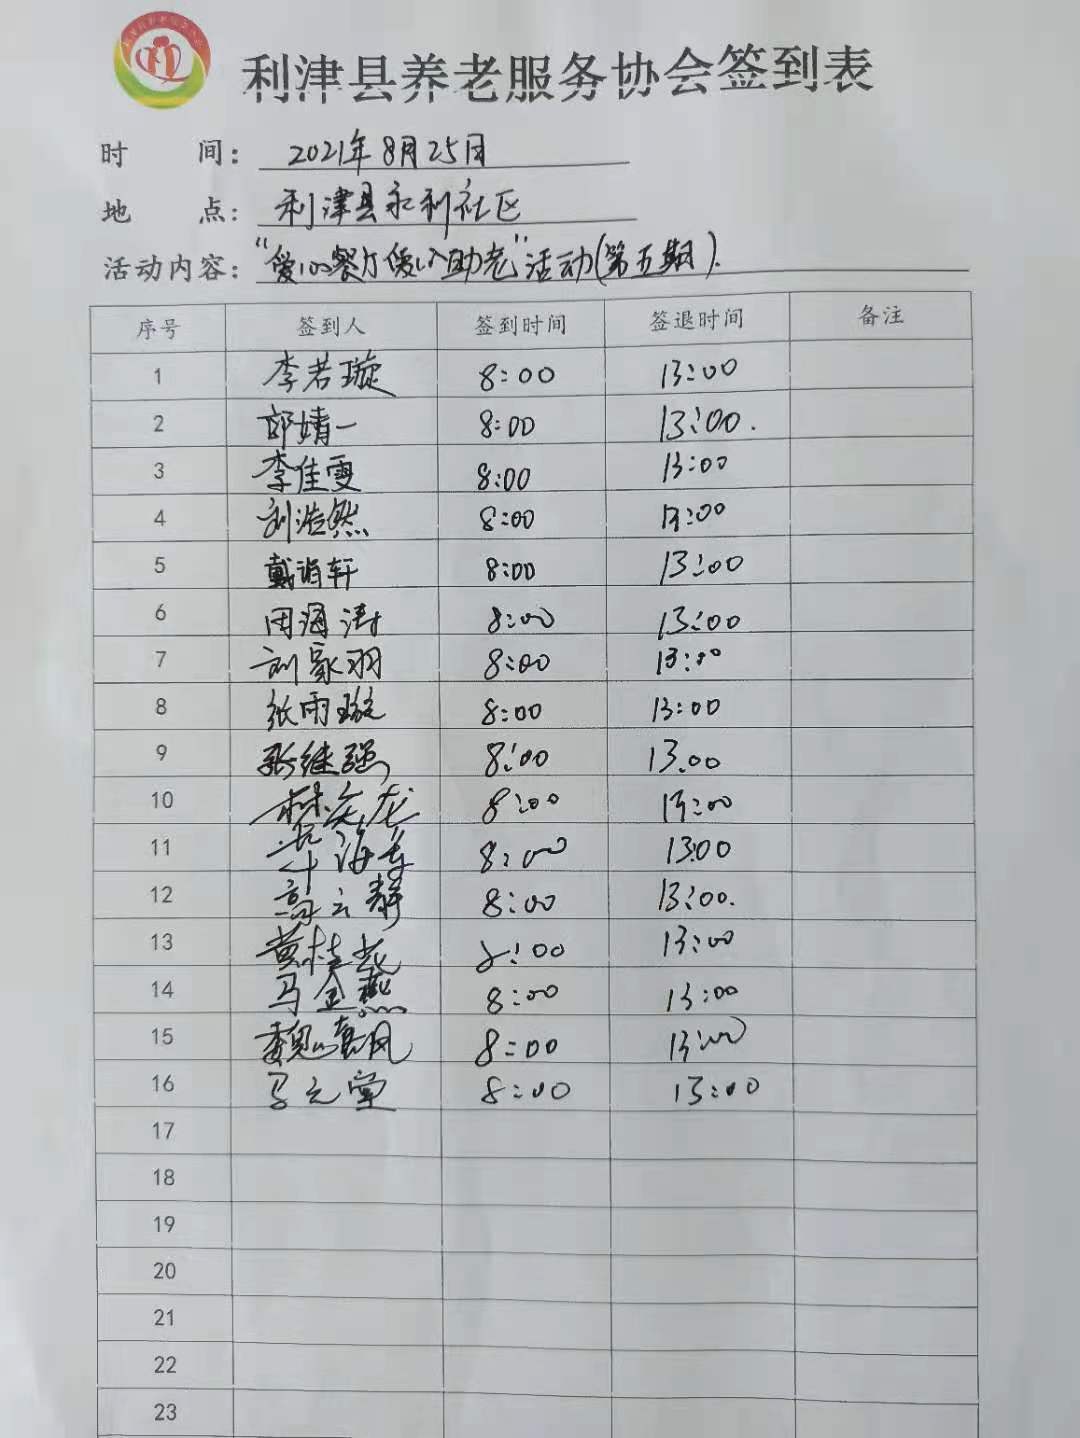 利津县养老服务协会签到表
时 间: 2021年8月25日
地 点: 利津县永利社区
活动内容: "爱心餐厅暖心助老"活动(第五期).
序号 签到人 签到时间 签退时间 备注
1 李若璇 8:00 13:00
2 邱婧一 8:00 13:00.
3 李佳雯 8:00 13:00
4 刘浩然 8:00 13:00
5 戴 轩 8:00 13:00
6 田海涛 8:00 13:00
7 刘家羽 8:00 13:00
8 张雨璇 8:00 13:00
9 张继强 8:00 13.00
10 林 龙 8:00 13:00
11 海 8:00 13:00
12 高云静 8:00 13:00.
13 黄桂 8:00 13:00
14 马金燕 8:00 13:00
15 魏喜凤 8:00 13:00
16 马元堂 8:00 13:00
17
18
19
20
21
22
23